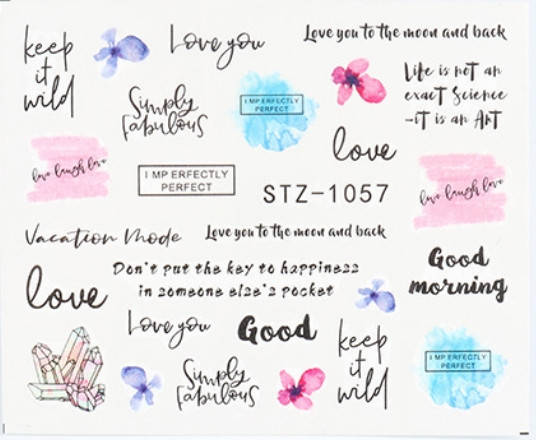 keep
it
wild
Love you
Love you to the moon and back
Simply
fabulous
I MPERFECTLY
PERFECT
Life is not an
exact Science
-iT is an ArT
love
love laugh love
I MPERFECTLY
PERFECT
STZ-1057
love laugh love
Vacation Mode
Love you to the moon and back
Good
morning
love
Don't put the key to happiness
in someone else's pocket
Love you
Good
keep
it
wild
Simply
fabulous
I MPERFECTLY
PERFECT